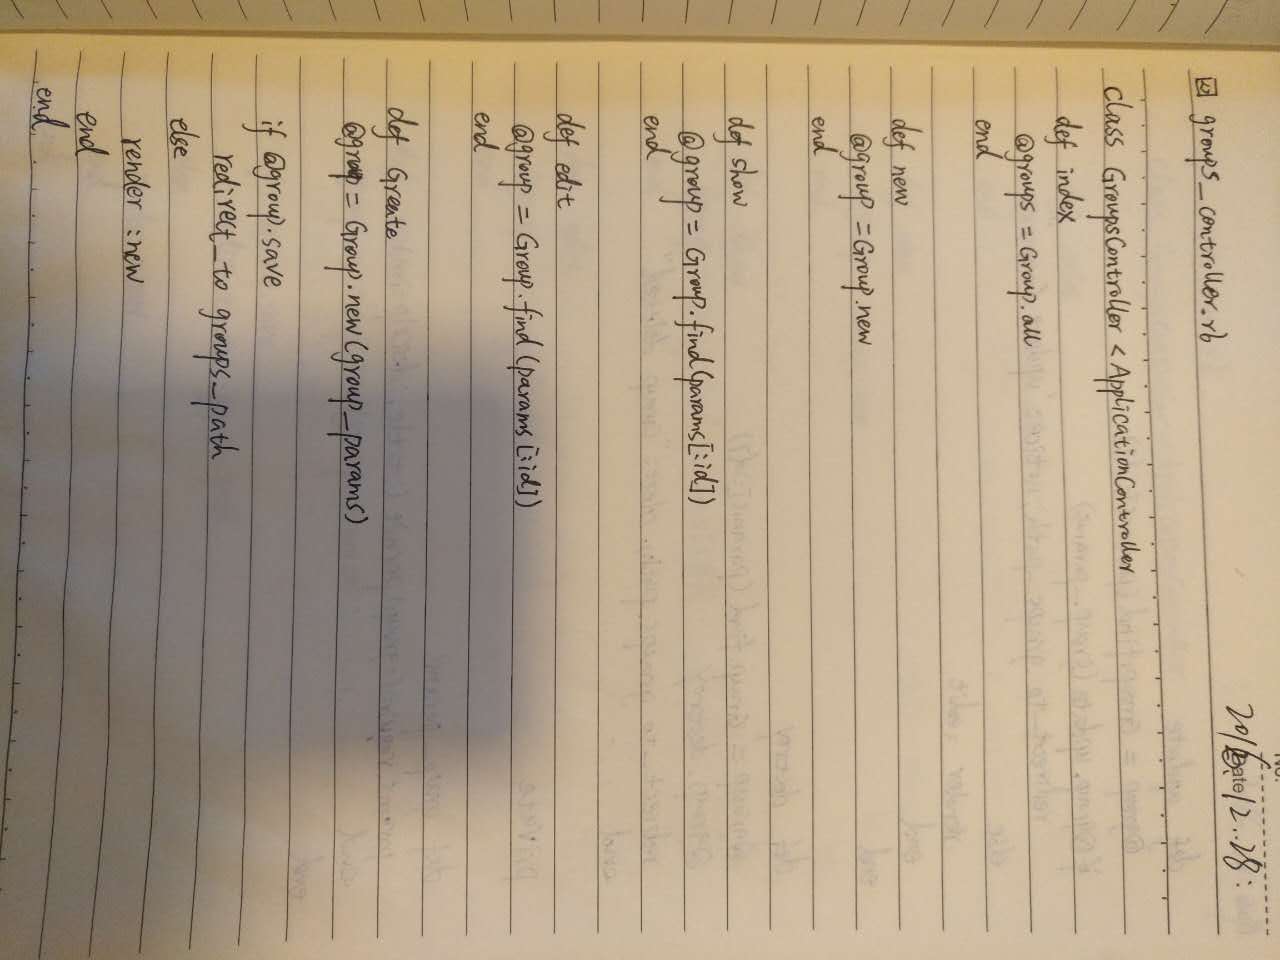 No.
Date
12.28
groups_controller.rb
class GroupsController < ApplicationController
def index
@groups = Group.all
end
def new
@group = Group.new
end
def show
@group = Group.find(params[:id])
end
def edit
@group = Group.find(params[:id])
end
def Greate
@group = Group.new(group_params)
if @group.save
redirect_to groups_path
else
render :new
end
end